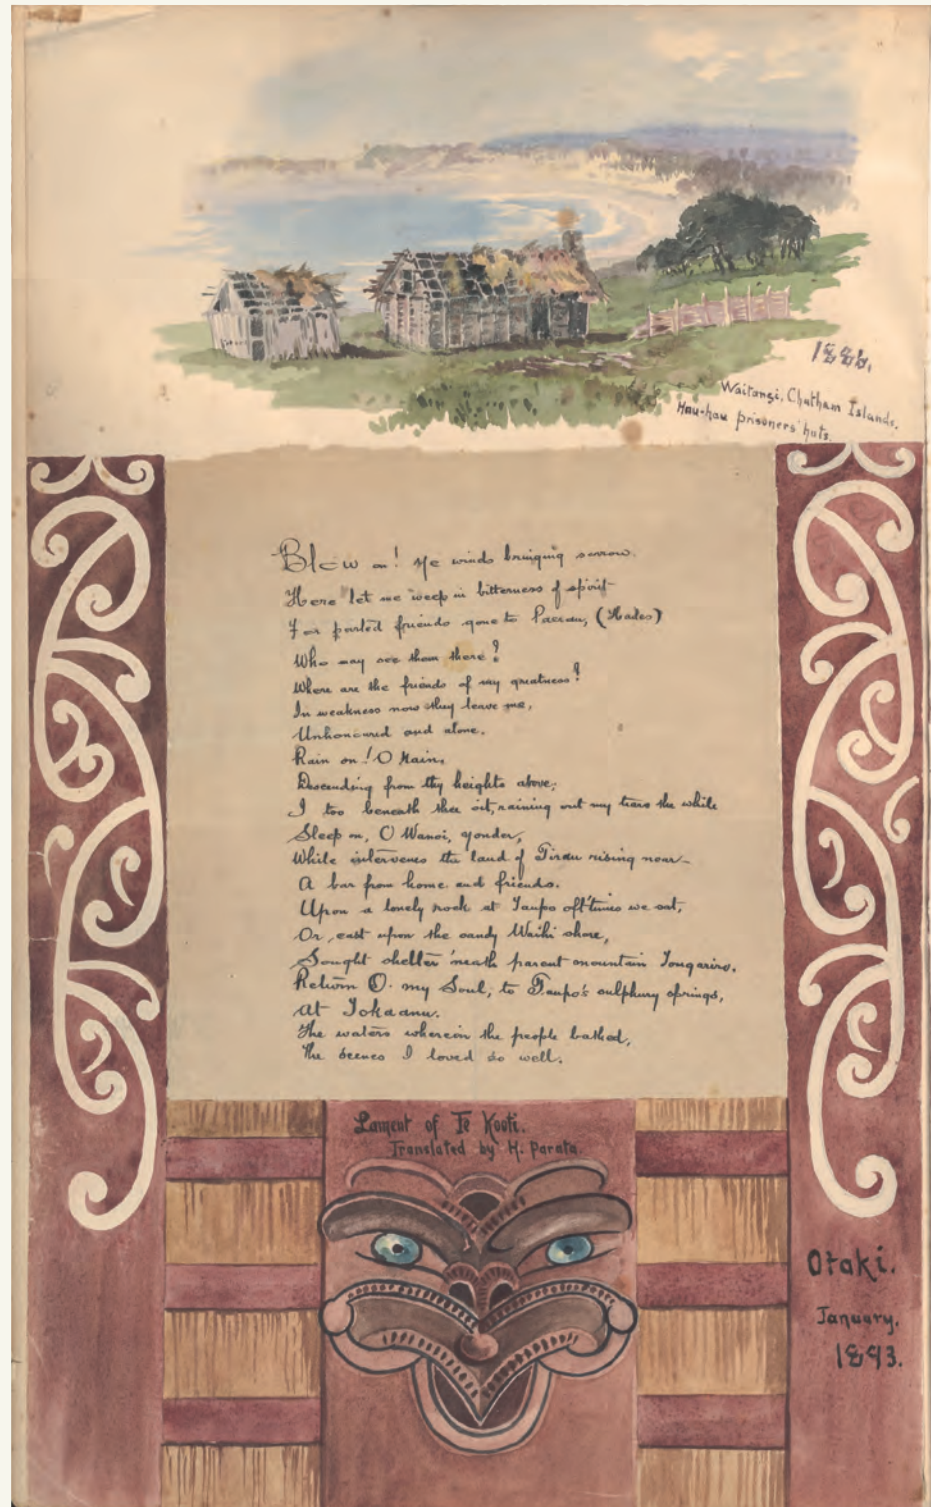 1886.
Waitangi, Chatham Islands.
Hau-hau prisoners' huts.
Blow on! Ye winds bringing sorrow.
Here let me weep in bitterness of spirit
For parted friends gone to Paerau, (Hades)
Who may see them there?
Where are the friends of my greatness?
In weakness now they leave me,
Unhonoured and alone.
Rain on! O Rain.
Descending from thy heights above;
I too beneath thee sit, raining out my tears the while
Sleep on, O Wanoi, yonder,
While intervenes the land of Tirau rising near-
A bar from home and friends.
Upon a lonely rock at Taupo oft'times we sat,
Or, cast upon the sandy Waihi shore,
Sought shelter 'neath parent mountain Tongariro.
Return O. my Soul, to Taupo's sulphury springs,
At Tokaanu.
The waters wherein the people bathed,
The scenes I loved so well.
Lament of Te Kooti.
Translated by H. Parata.
Otaki.
January.
1893.